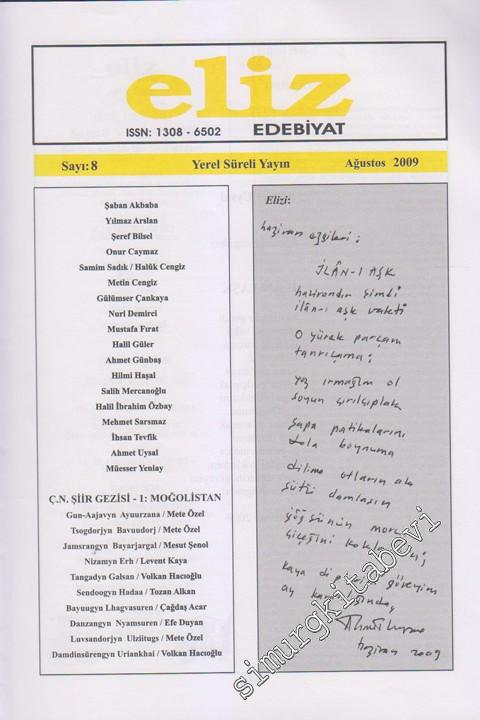 eliz
ISSN: 1308 - 6502 EDEBİYAT
Sayı: 8 Yerel Süreli Yayın Ağustos 2009
Şaban Akbaba
Yılmaz Arslan
Şeref Bilsel
Onur Caymaz
Samim Sadık / Halûk Cengiz
Metin Cengiz
Gülümser Çankaya
Nuri Demirci
Mustafa Fırat
Halil Güler
Ahmet Günbaş
Hilmi Haşal
Salih Mercanoğlu
Halil İbrahim Özbay
Mehmet Sarsmaz
İhsan Tevfik
Ahmet Uysal
Müesser Yeniay
Ç.N. ŞİİR GEZİSİ - 1: MOĞOLİSTAN
Gun-Aajavyn Ayuurzana / Mete Özel
Tsogdorjyn Bavuudorj / Mete Özel
Jamsrangyn Bayarjargal / Mesut Şenol
Nizamyn Erh / Levent Kaya
Tangadyn Galsan / Volkan Hacıoğlu
Sendoogyn Hadaa / Tozan Alkan
Bayuugyn Lhagvasuren / Çağdaş Acar
Danzangyn Nyamsuren / Efe Duyan
Luvsandorjyn Ulziitugs / Mete Özel
Damdinsürengyn Uriankhai / Volkan Hacıoğlu
Elizi:
haziran ezgileri :
İLÂN-I AŞK
hazirandır şimdi
ilân-ı aşk vakti
O yürek parçam
tanrıçama :
yaz ırmağım ol
soyun çırılçıplak
sapa patikalarını
dola boynuma
dilime otların ak
sütü damlasın
göğsünün mor
çiçeğini
kaya
ay
haziran 2009
simurgkitabevi